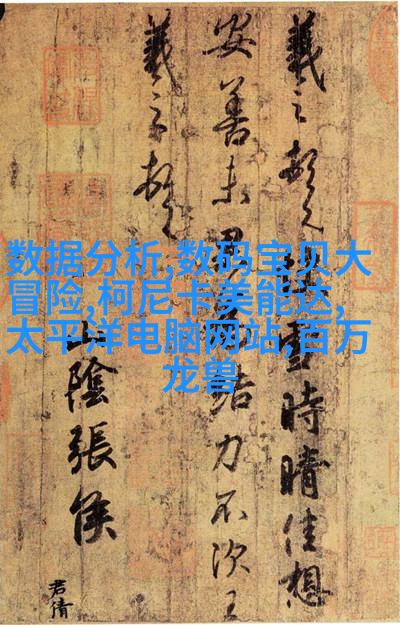 数据分析,数码宝贝大
冒险,柯尼卡美能达,
太平洋电脑网站,百万
龙兽
羲之頓首快雪時晴佳想
安善未果為結力不次王
羲之頓首
山陰張侯
君倩